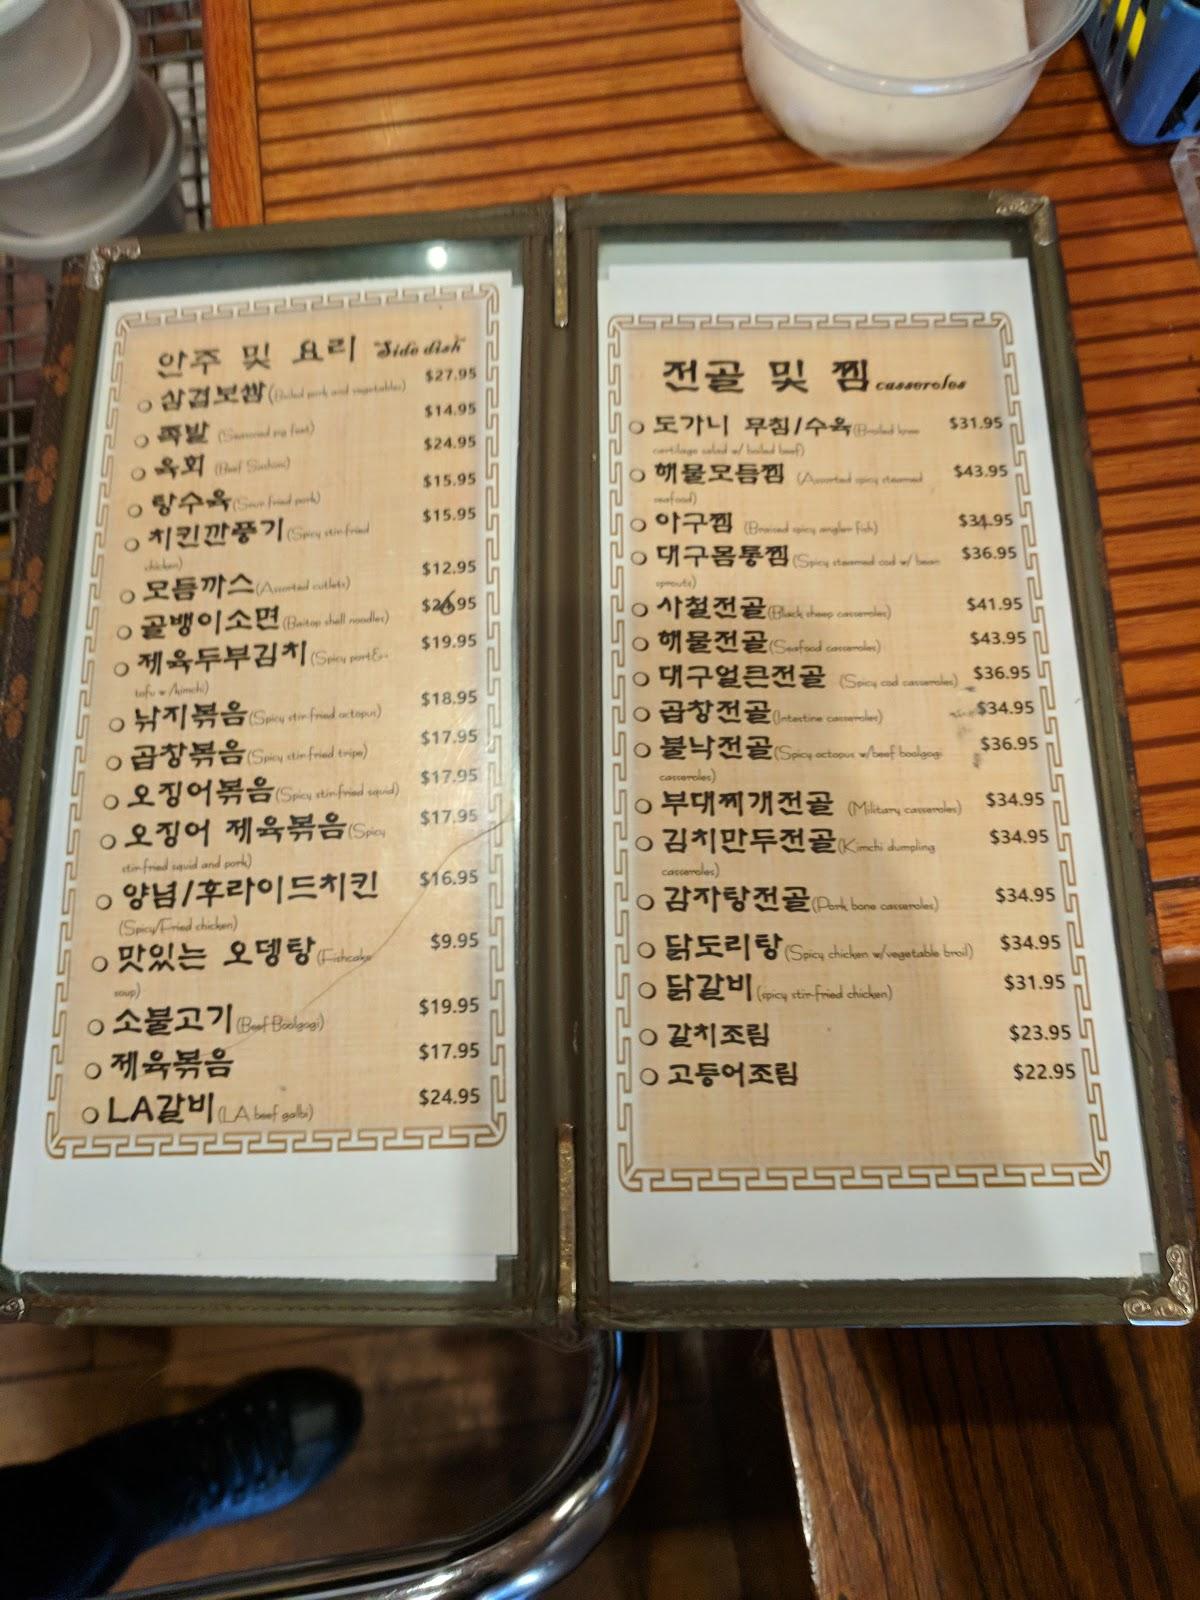 안주 및 요리 Side dish
삼겹보쌈(Boiled pork and vegetables) $27.95
족발 (Seasoned pig feet) $14.95
육회 (Beef Sashimi) $24.95
탕수육(Sour fried pork) $15.95
치킨깐풍기(Spicy stir-fried $15.95
chicken)
모듬까스(Assorted cutlets) $12.95
골뱅이소면(Baitop shell noodles)
제육두부김치(Spicy $19.95
tofu w/kimchi)
낚지볶음(Spicy stir-fried octopus) $18.95
곱창볶음(Spicy stir-fried tripe) $17.95
오징어볶음(Spicy stir-fried squid) $17.95
오징어 제육볶음(Spicy $17.95
stir-fried squid and pork)
양념/후라이드치킨 $16.95
(Spicy/Fried chicken)
맛있는 오뎅탕(Fishcake $9.95
soup)
소불고기(Beef Boolgogi) $19.95
제육볶음 $17.95
LA갈비(LA beef galbi) $24.95
전골 및 찜 casseroles
도가니 무침/수육(Broiled knee $31.95
cartilage salad w/ boiled beef)
해물모듬찜 (Assorted spicy steamed $43.95
seafood)
아구찜 (Braised spicy angler fish) $34.95
대구몸통찜(Spicy steamed cod w/ bean $36.95
sprouts)
사철전골(Black sheep casseroles) $41.95
해물전골(Seafood casseroles) $43.95
대구얼큰전골 (Spicy cod casseroles) $36.95
곱창전골(Intestine casseroles) $34.95
불낙전골(Spicy octopus w/beef boolgogi $36.95
casseroles)
부대찌개전골 (Military casseroles) $34.95
김치만두전골(Kimchi dumpling $34.95
casseroles)
감자탕전골(Pork bone casseroles) $34.95
닭도리탕(Spicy chicken w/vegetable broil) $34.95
닭갈비(spicy stir-fried chicken) $31.95
갈치조림 $23.95
고등어조림 $22.95